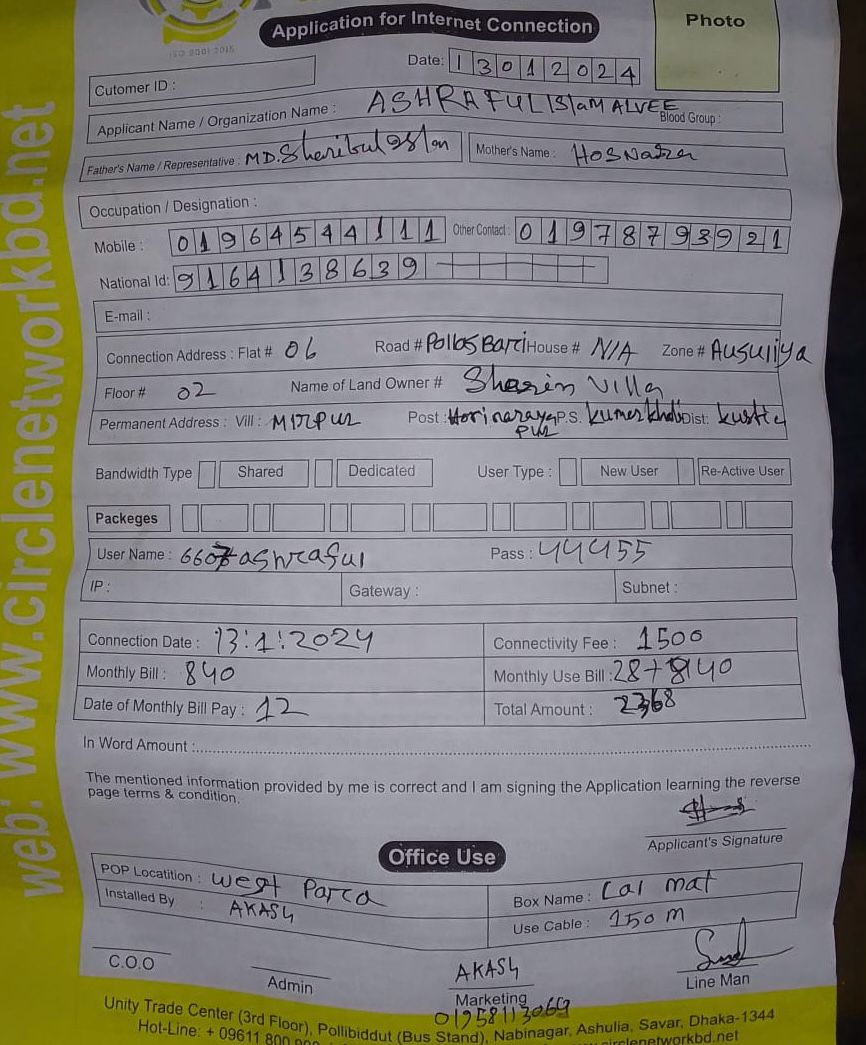 ISO 9001:2015
Application for Internet Connection
Photo
Date: 13012024
Cutomer ID :
Applicant Name / Organization Name : ASHRAFUL ISlaM ALVEE
Blood Group :
Father's Name / Representative : MD. Mother's Name :
Occupation / Designation :
Mobile : 01964544111 Other Contact : 01978793921
National Id: 9164138639
E-mail :
Connection Address : Flat # 06 Road # House # N/A Zone # Ausuliya
Floor # 02 Name of Land Owner # Villa
Permanent Address : Vill : MIrpur Post : Horinarayanpur P.S. kumarkhali Dist:
Bandwidth Type Shared Dedicated User Type : New User Re-Active User
Packeges
User Name : 6607ashraful Pass : 44455
IP : Gateway : Subnet :
Connection Date : 13:1:2024 Connectivity Fee : 1500
Monthly Bill : 840 Monthly Use Bill : 28+840
Date of Monthly Bill Pay : 12 Total Amount : 2368
In Word Amount :
The mentioned information provided by me is correct and I am signing the Application learning the reverse
page terms & condition.
Applicant's Signature
Office Use
POP Locatition : West Parca Box Name : Lal mat
Installed By : AKASH Use Cable : 150 M
C.O.O Admin AKASH Marketing Line Man
01958113063
Unity Trade Center (3rd Floor), Pollibiddut (Bus Stand), Nabinagar, Ashulia, Savar, Dhaka-1344
Hot-Line: + 09611 800 circlenetworkbd.net
web: www.circlenetworkbd.net